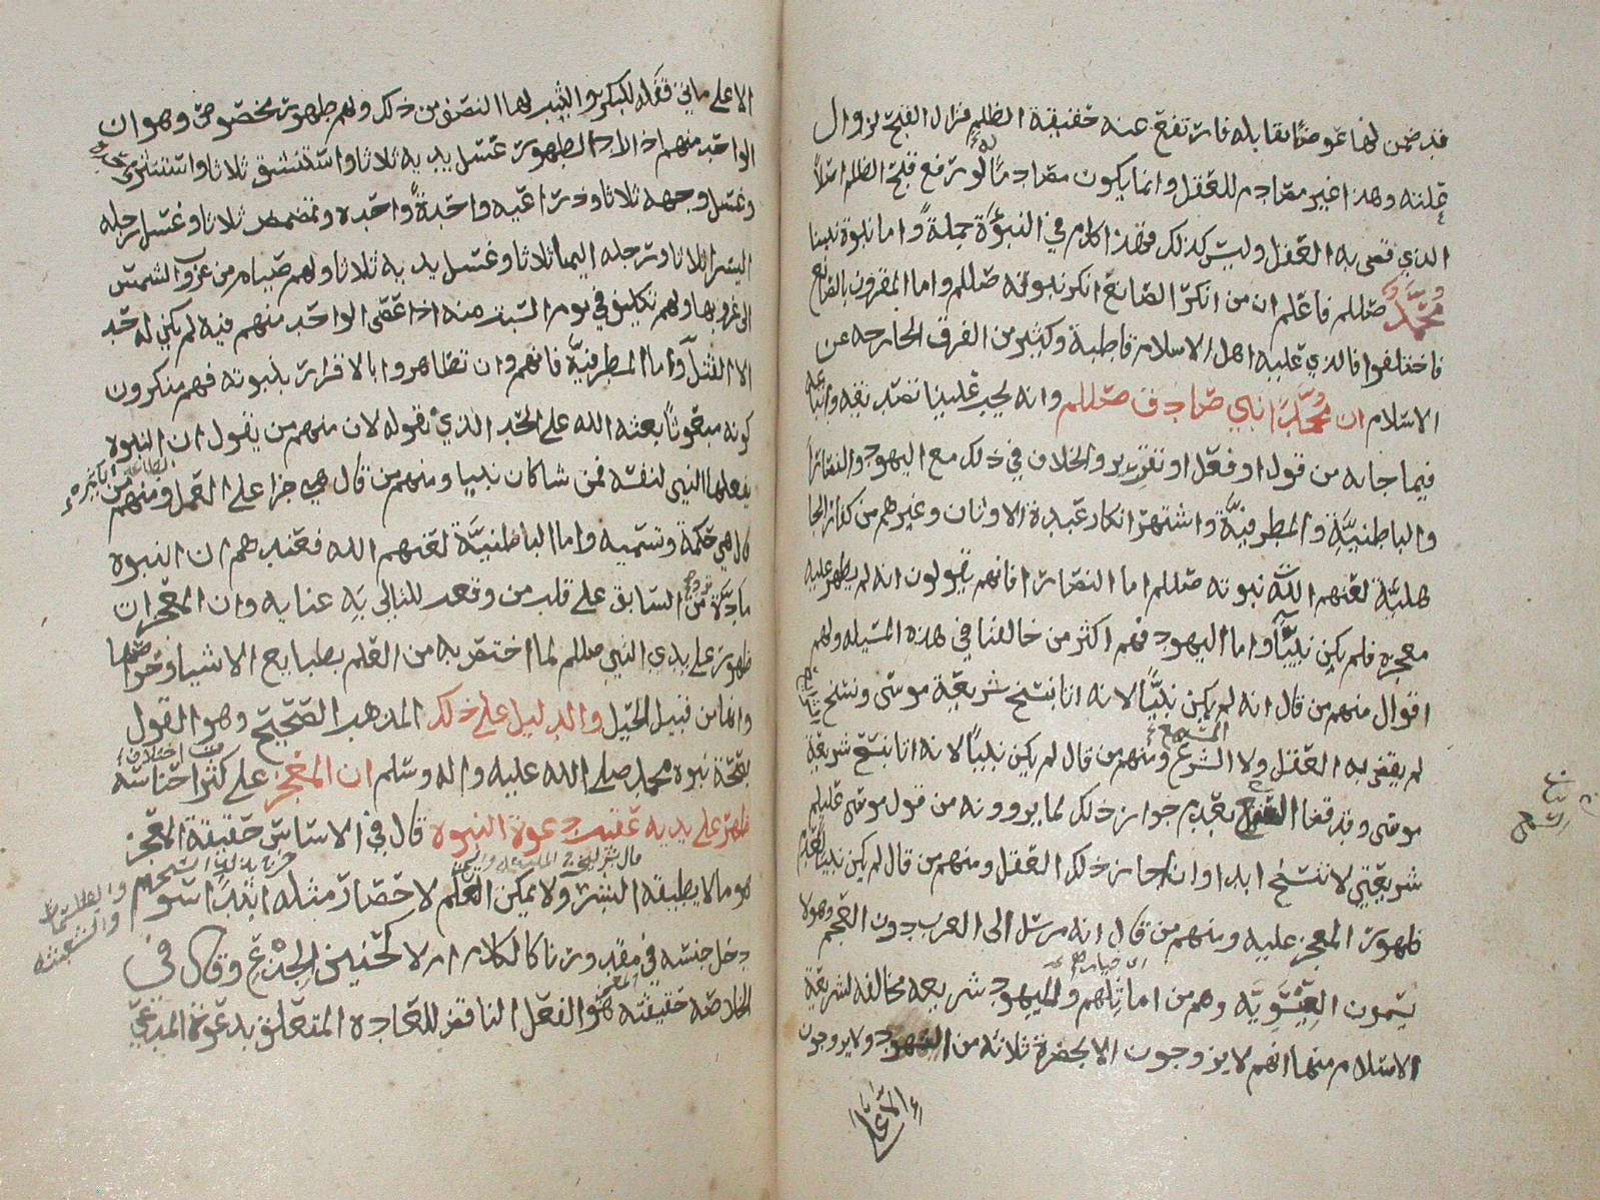 قد ضمن لها عوضًا يقابله فارتفع عنه حقيقة الظلم فزال القبح لزوال
علته وهذا غير مصادم للعقل وانما يكون مصادمًا لو رفع قبح الظلم اصلًا
الذي قضى به العقل وليس كذلك فهذا كلام في النبوّة جملةً واما نبوة نبينا
محمّد صللم فاعلم ان من انكر الصانع انكر نبوته صللم واما المقرون بالصانع
فاختلفوا فالذي عليه اهل الاسلام قاطبة وكثير من الفرق الخارجه عن
الاسلام ان محمّدًا نبي صادق صللم وانه يجب علينا تصديقه واتباعه
فيما جا به من قول او فعل او تقرير والخلاف في ذلك مع اليهود والنصارا
والباطنيّة والمطرفيّة واشتهر انكار عبدة الاوثان وغيرهم من كفار الجا
هليّة لعنهم اللّه نبوته صللم اما النصارا فانهم يقولون انه لم يظهر عليه
معجزه فلم يكن نبيًّا واما اليهود فهم اكثر من خالفنا في هذه المسيله ولهم
اقوال منهم من قال انه لم يكن نبيًّا لانه اتا بنسخ شريعة موسى ونسخ
لم يقض به العقل ولا الشرع ومنهم من قال لم يكن نبيًا لانه اتا بنسخ شريعة
موسى وقد قضا السمع بعدم جواز ذلك لما يروونه من قول موسى عليلم
شريعتي لا تنسخ ابدا وان جاز ذلك العقل ومنهم من قال لم يكن نبيا لعدم
ظهور المعجز عليه ومنهم من قال انه مرسل الى العرب دون العجم وهولا
يسمون العيسويّه وهم من اماثلهم ولليهود شريعه مخالفه لشريعة
الاسلام منها انهم لا يزوجون الا بحضرة ثلاثه من اليهود ولا يزوجون
الا على
الا على مايتي قفله للبكر والثيب لها النصف من ذلك ولهم طهور مخصوص وهو ان
الواحد منهم اذا اراد الطهور غسل يديه ثلاثا واستنشق ثلاثا واستنثر
وغسل وجهه ثلاثا وذراعيه واحدةً واحده وتمضمض ثلاثا وغسل رجله
اليسرا ثلاثا ورجله اليمنا ثلاثا وغسل يديه ثلاثا ولهم صيام من غروب الشمس
الى غروبها ولهم تكليف في يوم السبت منه اذا عصى الواحد منهم فيه لم يكن له حد
الا القتل واما المطرفيّة فانهم وان تظاهروا بالاقرار بنبوته فهم منكرون
كونه مبعوثًا بعثه الله على الحد الذي نقوله لان منهم من يقول ان النبوه
يفعلها النبي لنفسه فمن شا كان نبيا ومنهم من قال هي جزا على العمل ومنهم من
قال هي حكمة وتسميه واما الباطنيّة لعنهم الله فعندهم ان النبوه
مادّة من السابق على قلب من وقعت للتالي به عنايه وان المعجزات
ظهور على يدي النبي صللم لما اختص به من العلم بطبايع الاشيا وخواصها
وانها من قبيل الحيل والدليل على ذلك المذهب الصحيح وهو القول
بصحة نبوة محمد صلى الله عليه واله وسلم ان المعجز على كثر اجناسه
ظهر على يديه عقيب دعوة النبوه قال في الاساس حقيقة المعجز
هو ما لا يطيقه البشر ولا يمكن التعلّم لاحضار مثله ابتدًا سوا
دخل جنسه في مقدورنا كالكلام ام لا كحنين الجذع وقال في
الخلاصه حقيقته هو الفعل الناقض للعادة المتعلق بدعوة المدعي